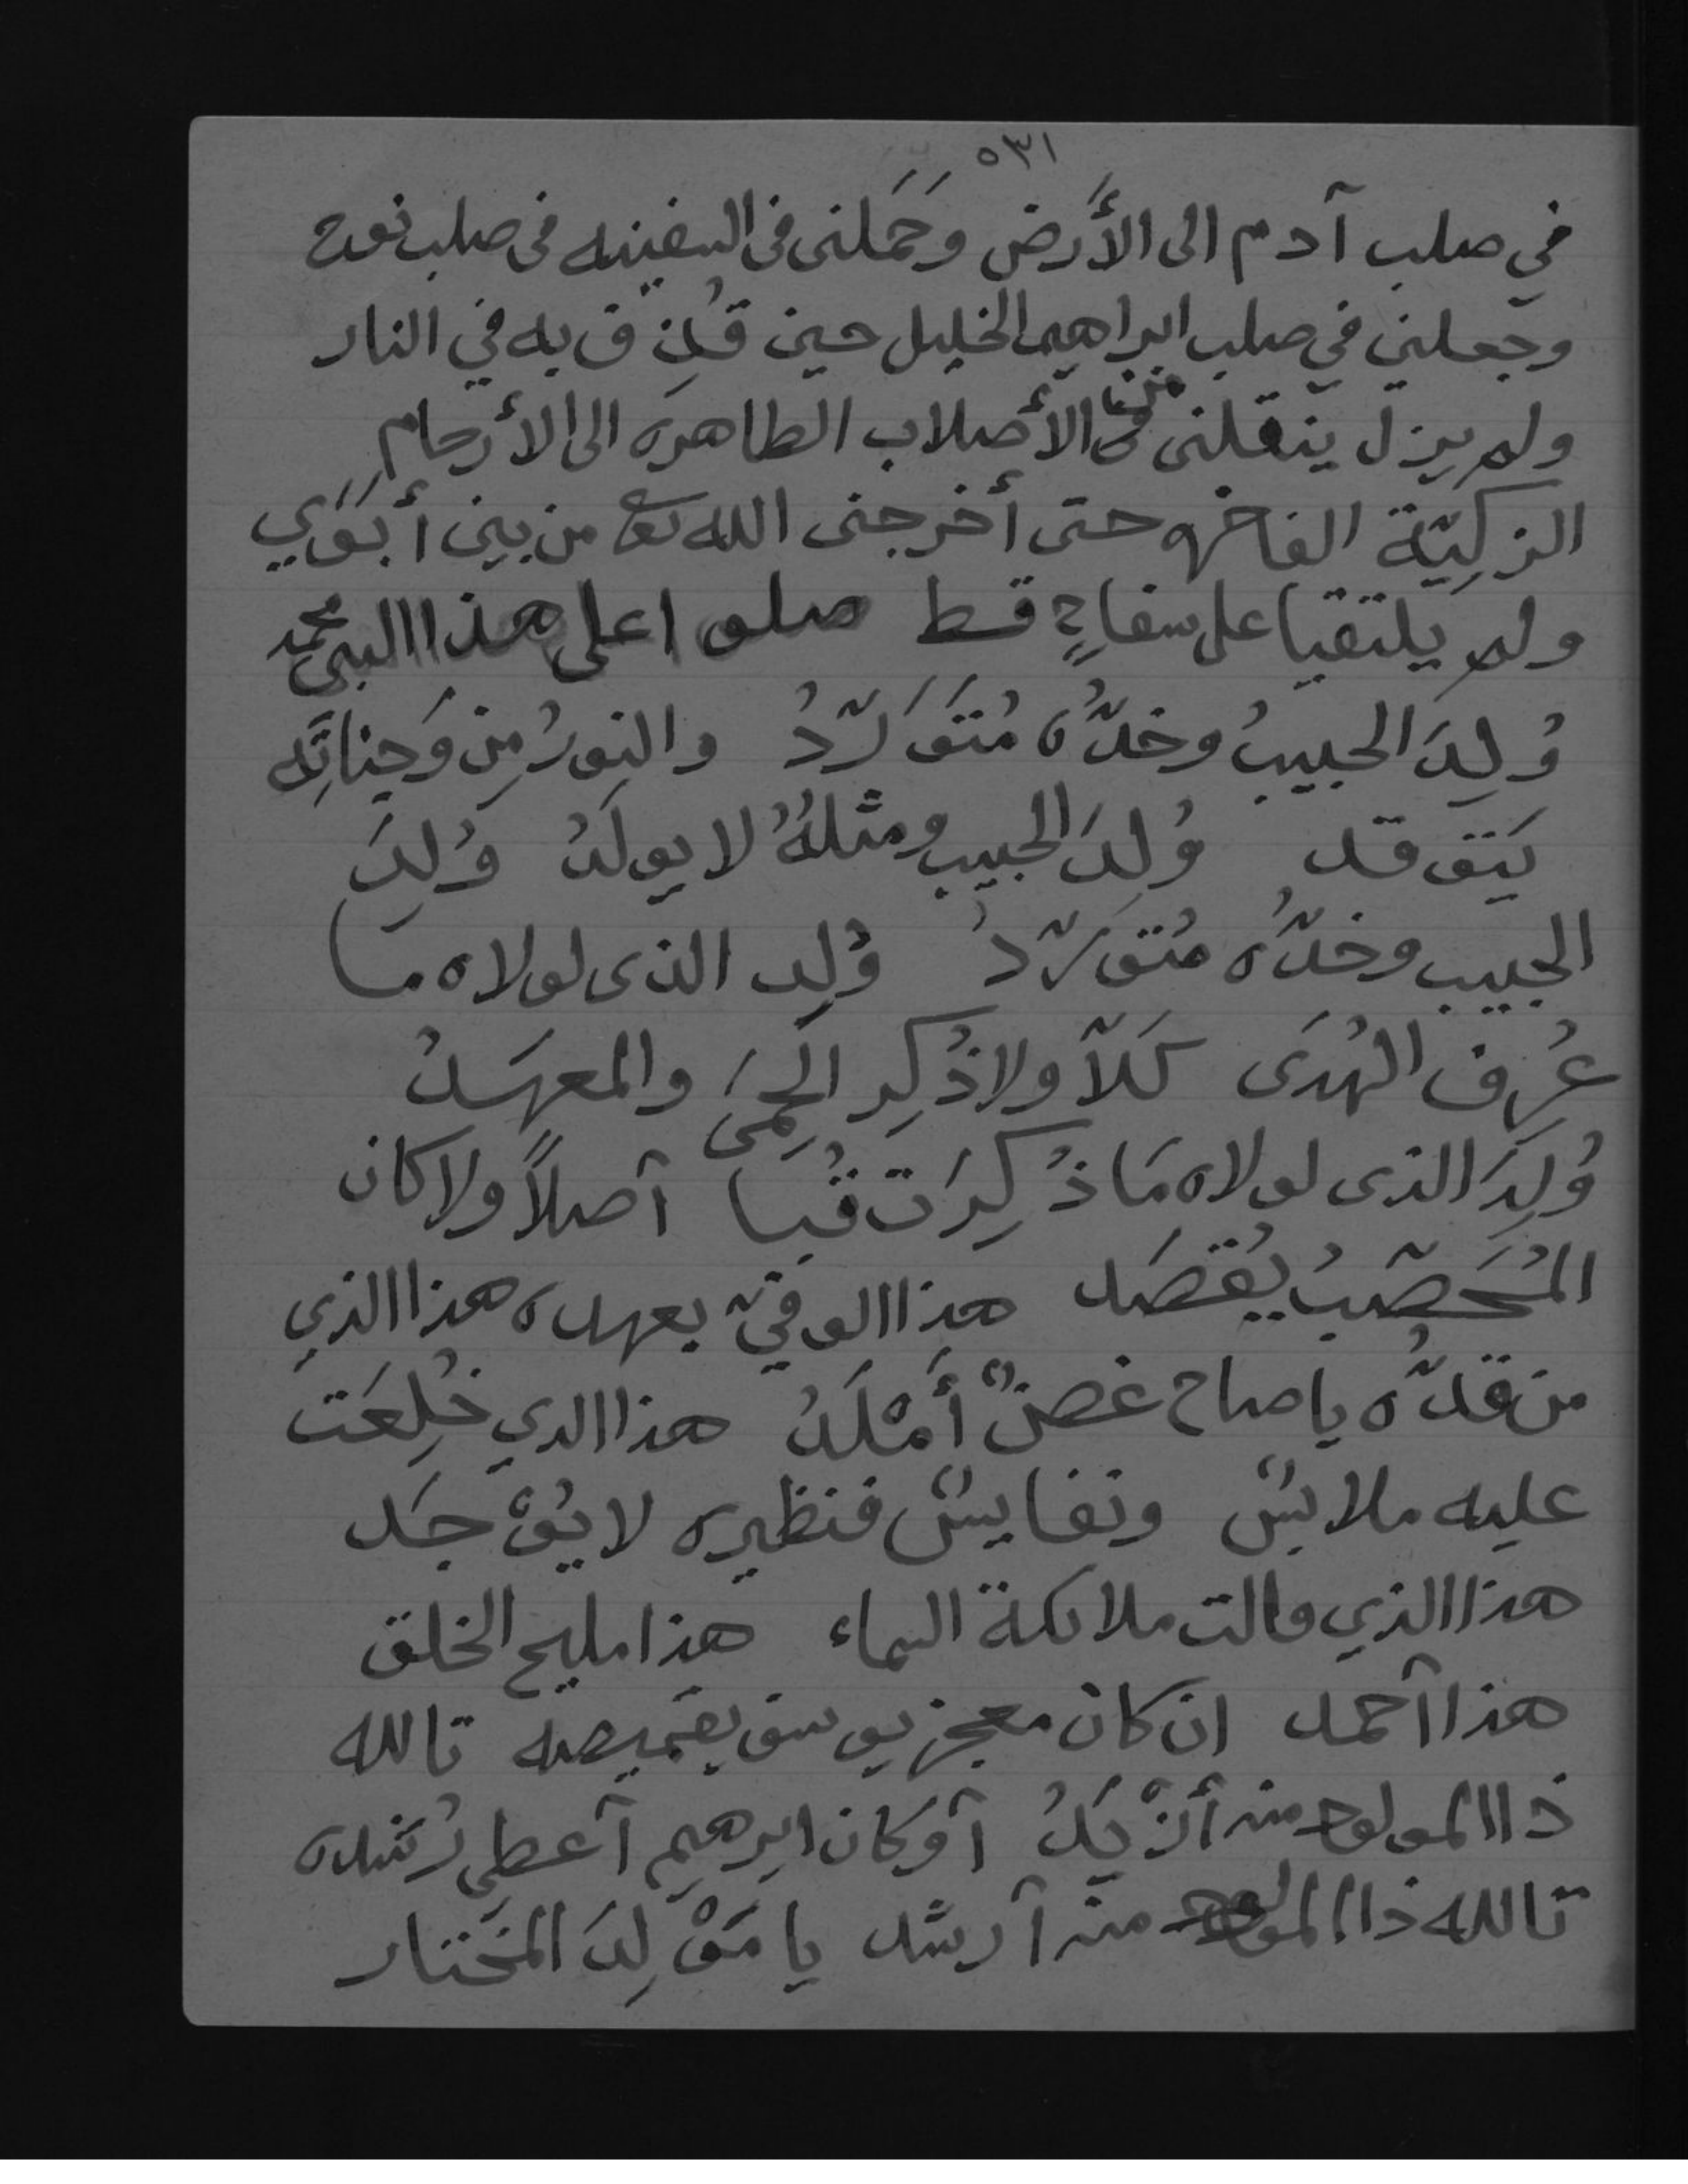 ٥٣١
في صلب آدم الى الأَرض وَحَمَلنى فى السفينه فى صلب نوح
وجعلنى في صلب ابراهيم الخليل حين قُذِف به في النار
ولم يزل ينقلنى من الأصلاب الطاهره الى الأرحامِ
الزكيّة الفاخره حتى أخرجنى الله تع من بين أبَوَي
ولم يلتقيا على سفاحٍ قط صلوا على هذا النبى محمد
وُلِدَ الحبيبُ وخدُّه مُتَوَرّدُ والنورُ مِن وَجناتِه
يَتوقد وُلِدَ الحبيب ومثلهُ لا يولَدُ وُلِدَ
الحبيب وخدُّه مُتوَرّدُ وُلِد الذى لولاه ما
عُرِف الهُدَى كَلاّ ولا ذُكِر الحِمَى والمعهَدُ
وُلِدَ الذى لولاه مَا ذُكِرَت قُبا آصلاً ولا كان
المُحَصّبُ يُقصَد هذا الوفيّ بعهده هذا الذي
من قدُّه ياصاح غصنٌ أَمْلَدُ هذا الدي خُلِعَت
عليه ملابسٌ ونفايسٌ فنظيره لا يُوْجَد
هذا الذي قالت ملائكة السماء هذا مليح الخلق
هذا آحمد ان كان معجز يوسف بقميصه تالله
ذا المولود منه أزْيَدُ آوكان ابرهيم آعطِي رُشده
تالله ذا المولود منه آرشد يا مَوْلِدَ المخَتار